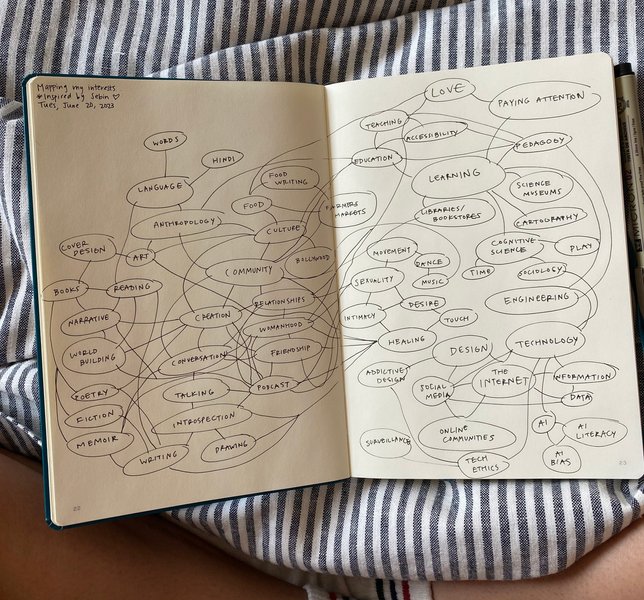 Mapping my interests
*Inspired by Sebin ♡
Tues, June 20, 2023
WORDS
HINDI
LANGUAGE
FOOD
WRITING
FOOD
ANTHROPOLOGY
CULTURE
FARMERS
MARKETS
COVER
DESIGN
ART
BOLLYWOOD
COMMUNITY
BOOKS
READING
RELATIONSHIPS
NARRATIVE
CREATION
WOMANHOOD
WORLD
BUILDING
CONVERSATION
FRIENDSHIP
POETRY
TALKING
PODCAST
FICTION
INTROSPECTION
MEMOIR
WRITING
DRAWING
22
LOVE
PAYING ATTENTION
TEACHING
ACCESSIBILITY
PEDAGOGY
EDUCATION
LEARNING
SCIENCE
MUSEUMS
LIBRARIES/
BOOKSTORES
CARTOGRAPHY
MOVEMENT
COGNITIVE
SCIENCE
PLAY
DANCE
TIME
SOCIOLOGY
SEXUALITY
MUSIC
ENGINEERING
DESIRE
INTIMACY
TOUCH
HEALING
DESIGN
TECHNOLOGY
ADDICTIVE
DESIGN
SOCIAL
MEDIA
THE
INTERNET
INFORMATION
DATA
SURVEILLANCE
ONLINE
COMMUNITIES
AI
AI
LITERACY
TECH
ETHICS
AI
BIAS
23